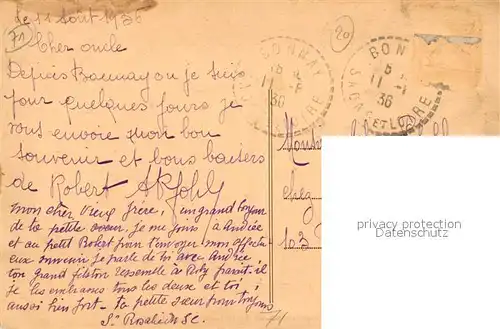 le 11 Aout 1936
71
20
Cher oncle
Depuis Bonnay ou je suis
pour quelques jours je
vous envoie mon bon
souvenir et bons baisers
de Robert
mon cher Vieux frère, un grand bonjour
de ta petite soeur, je me joins à Andrée
et au petit Robert pour t'envoyer mon affectu
eux souvenir je parle de toi avec Andrée
ton grand fiston ressemble à Roby parait-il
je les embrasse tous les deux et toi,
aussi bien fort. ta petite soeur pour toujours
Sr Rosalie
BONNAY
11 -8
36
LOIRE
BON
11 -
36
SAONE ET LOIRE
Mons
chez
103
71
privacy protection
Datenschutz